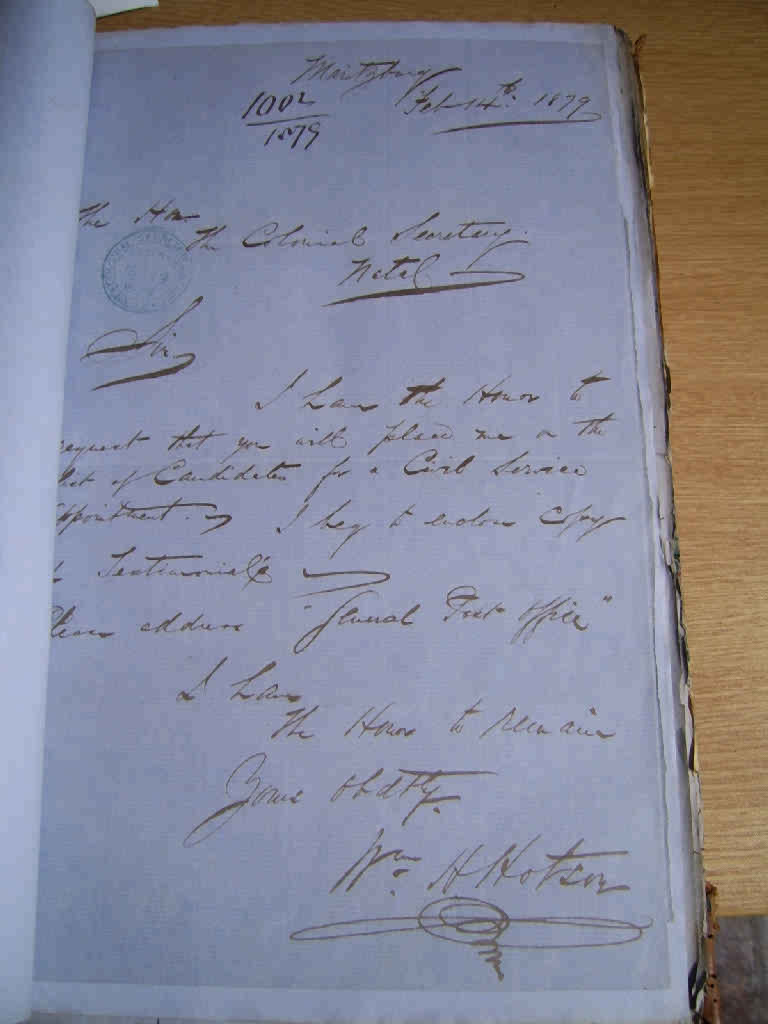 Maritzburg
1002
1879
Feb 14th. 1879
The Hon
The Colonial Secretary.
Natal
Sir
I have the Honor to
request that you will place me on the
list of Candidates for a Civil Service
Appointment. I beg to enclose copy
of Testimonials
Please address "General Post Office"
I have
The Honor to Remain
Yours Obdtly.
Wm. H Hotson